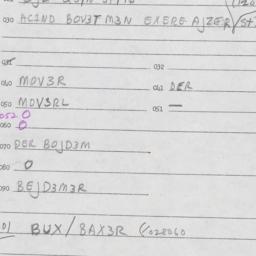 030 ACIND BOV3T M3N EXERE AJZER/ST
032
040 MOV3R 041 DER
050 MOV3RL 051 —
052 O
060 O
070 DER BOJD3M
080 O
090 BEJD3M3R
BUX/BAX3R (/028060